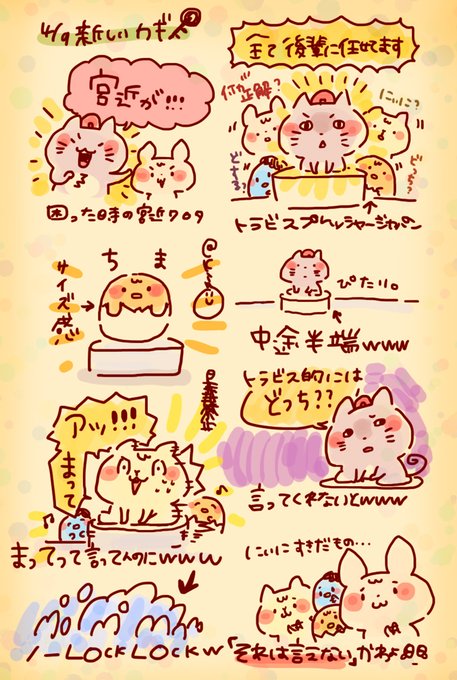 4/9 新しいカギ
宮近が!!!
困った時の宮近709
全て後輩に任せてます
何が正解?
にいに?
どする?
どうする?
トラビスプレッシャージャパン
ちま
サイズ感
ぴたり。
中途半端www
アッ!!!
まって
まってって言ってんのにwww
トラビス的にはどっち??
言ってくれないとwww
ノーLOCK LOCKw
にいにすきだもの…
「それは言えない」かわよ